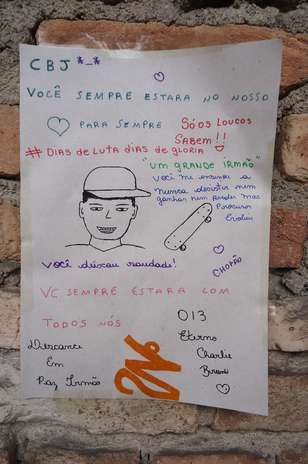 CBJ *_*
VOCÊ SEMPRE ESTARA NO NOSSO
PARA SEMPRE
SÓ OS LOUCOS
SABEM!!
# DIAS de LUTA diAS de GLORIA
"UM GRANDE IRMÃO"
VOCÊ ME ensinou a
Nunca desistir nem
ganhar nem perder mas
Procurar
Evoluir
CHORÃO
você deixou saudade!
VC SEMPRE ESTARA COM
TODOS NÓS
013
Descance
Em
Paz Irmão
Eterno
Charlie
Brown